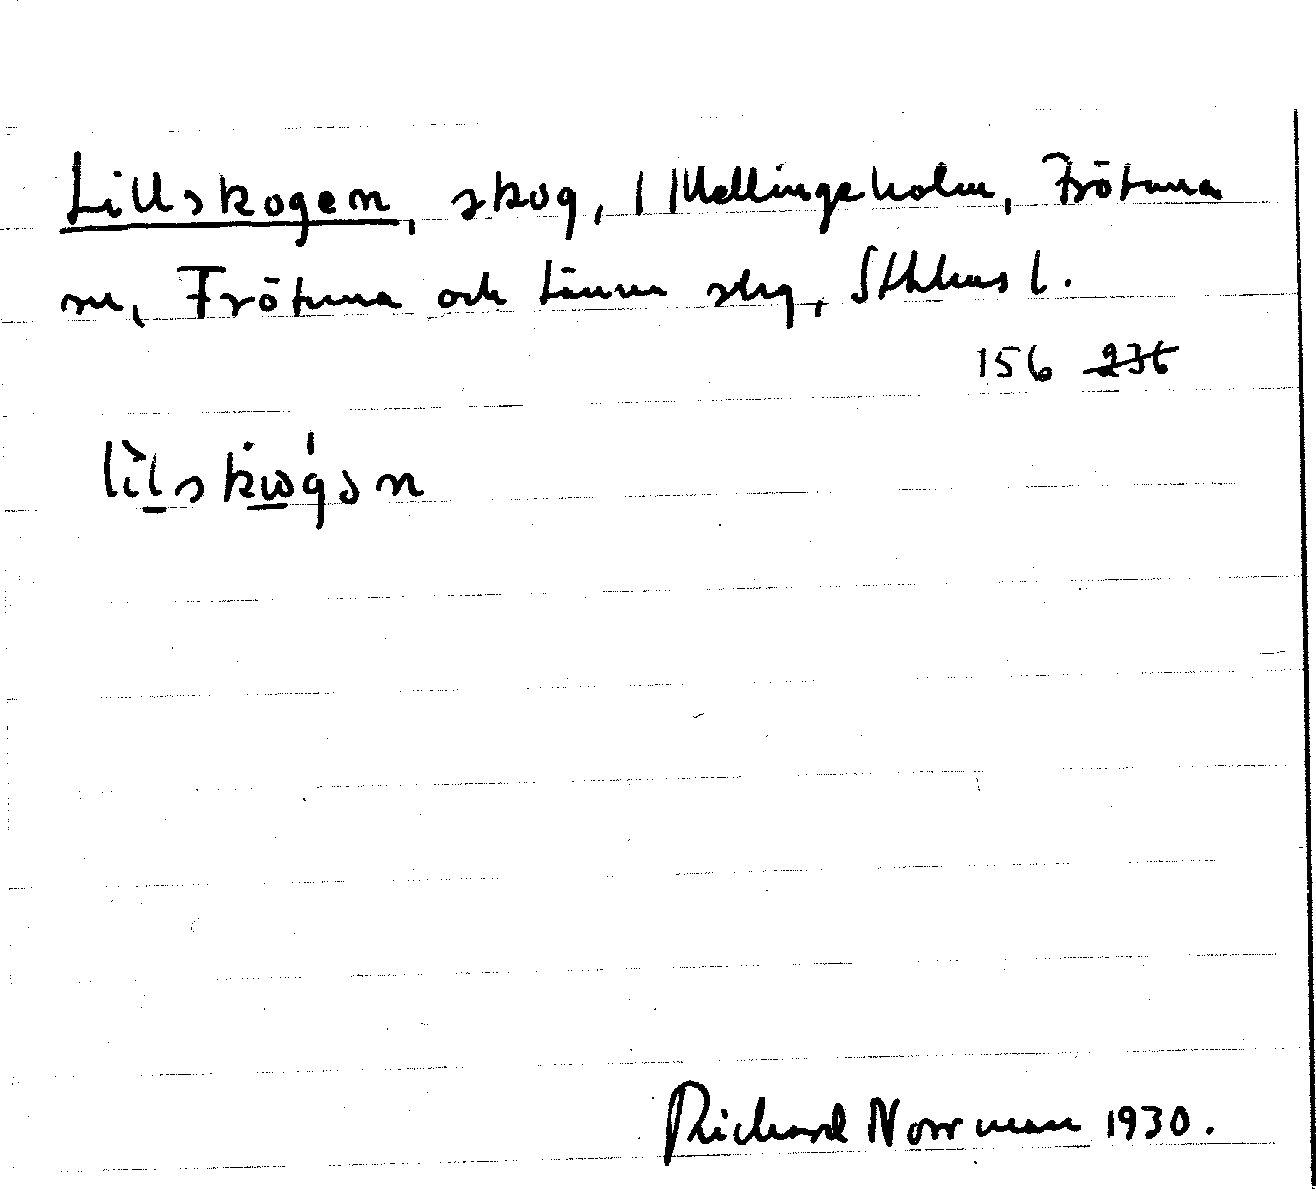 Lillskogen, skog, 1 Mellingeholm, Frötuna
sn, Frötuna och Länna slg, Sthlms l.
156 236
Richard Norrman 1930.